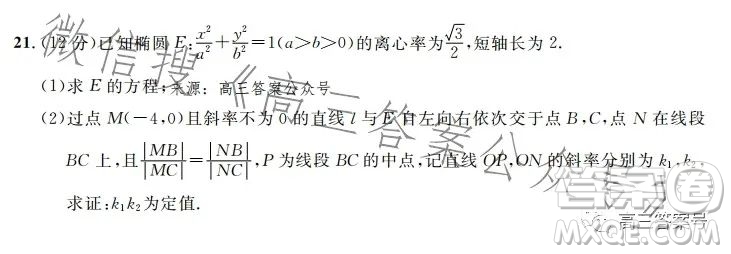 21.(12 分)已知椭圆 E:x²/a²+y²/b²=1(a>b>0)的离心率为√3/2,短轴长为 2.
(1)求 E 的方程;来源:高三答案公众号
(2)过点 M(-4,0)且斜率不为 0 的直线 l 与 E 自左向右依次交于点 B,C,点 N 在线段
BC 上,且|MB|/|MC|=|NB|/|NC|,P 为线段 BC 的中点,记直线 OP,ON 的斜率分别为 k₁,k₂.
求证:k₁k₂为定值.
微信搜《高三答案公众号》
高三答案号
答案圈
MXQE.COM